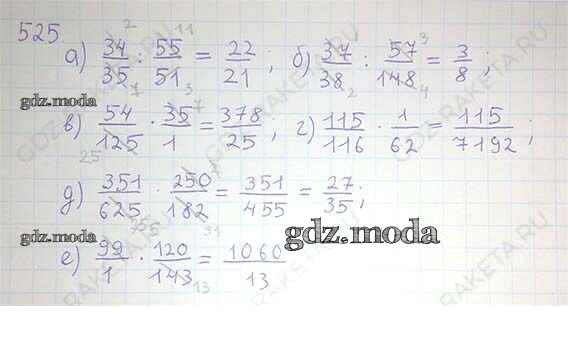 525
а) 34/35 : 55/51 = 22/21 ; б) 37/38 : 57/148 = 3/8 ;
gdz.moda
в) 54/125 · 35/1 = 378/25 , г) 115/116 · 1/62 = 115/7192 ;
д) 351/625 · 250/182 = 351/455 = 27/35 ;
gdz.moda
е) 99/1 · 120/143 = 1060/13